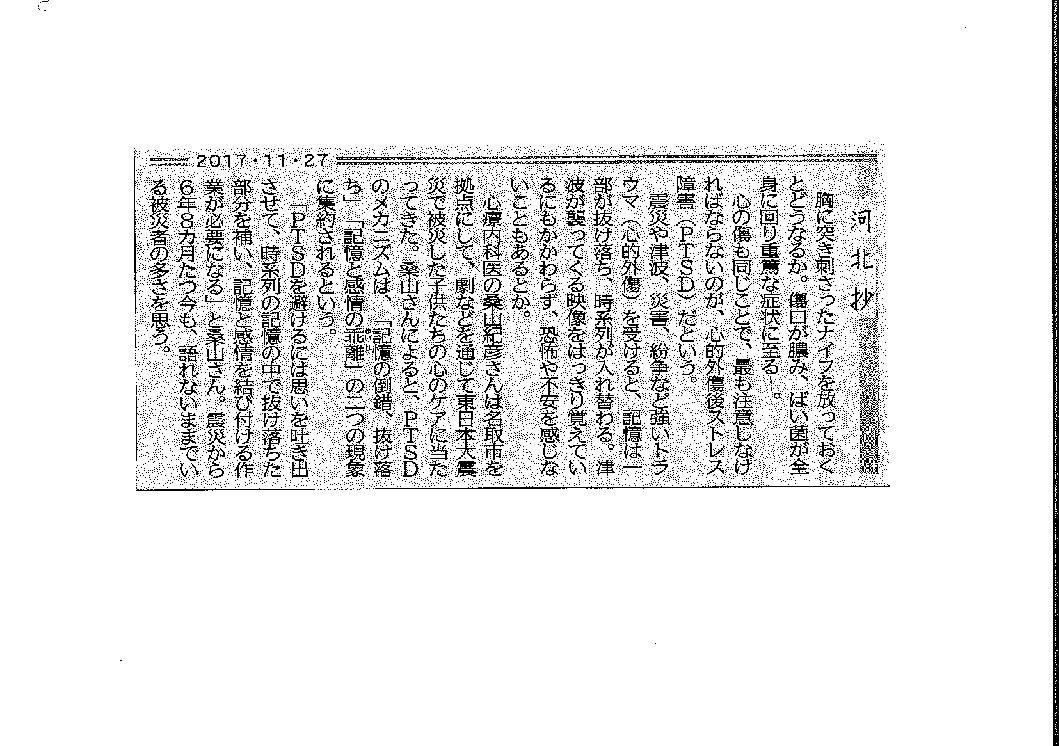 河北抄
2017・11・27
胸に突き刺さったナイフを放っておく
とどうなるか。傷口が膿み、ばい菌が全
身に回り重篤な症状に至る―。
心の傷も同じことで、最も注意しなけ
ればならないのが、心的外傷後ストレス
障害（PTSD）だという。
震災や津波、災害、紛争など強いトラ
ウマ（心的外傷）を受けると、記憶は一
部が抜け落ち、時系列が入れ替わる。津
波が襲ってくる映像をはっきり覚えてい
るにもかかわらず、恐怖や不安を感じな
いこともあるとか。
心療内科医の桑山紀彦さんは名取市を
拠点にして、劇などを通じて東日本大震
災で被災した子供たちの心のケアに当た
ってきた。桑山さんによると、PTSD
のメカニズムは、「記憶の倒錯、抜け落
ち」「記憶と感情の乖離」の二つの現象
に集約されるという。
「PTSDを避けるには思いを吐き出
させて、時系列の記憶の中で抜け落ちた
部分を補い、記憶と感情を結び付ける作
業が必要になる」と桑山さん。震災から
6年8カ月たつ今も、語れないままでい
る被災者の多さを思う。